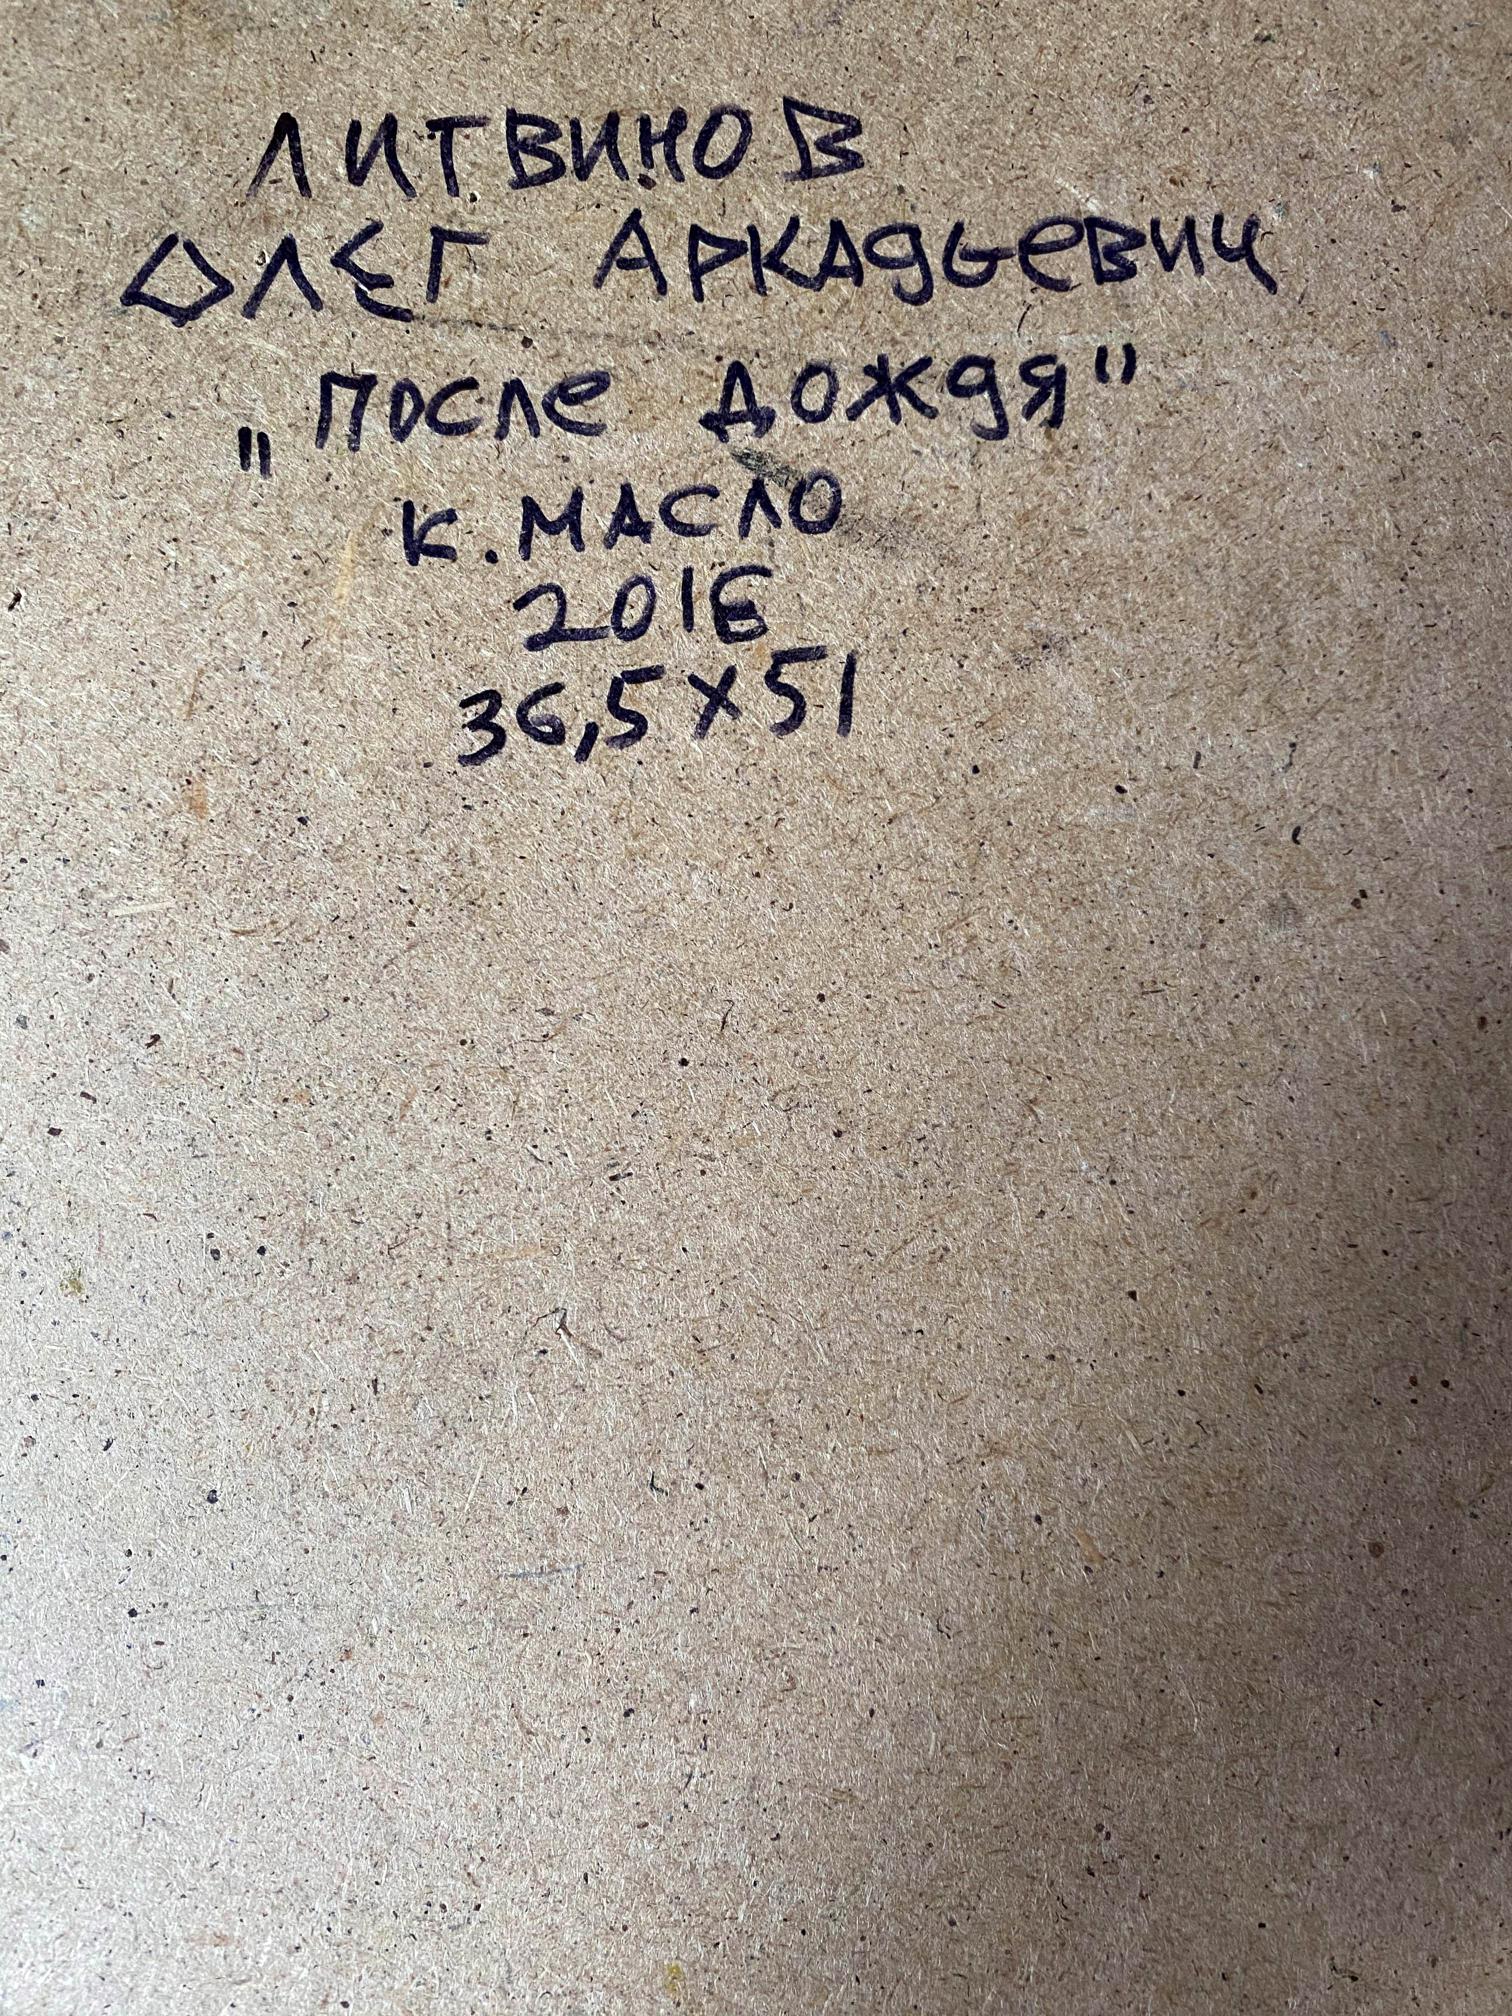 ЛИТВИНОВ
ОЛЕГ АРКАДЬЕВИЧ
„ПОСЛЕ ДОЖДЯ"
К. МАСЛО
2016
36,5 X 51